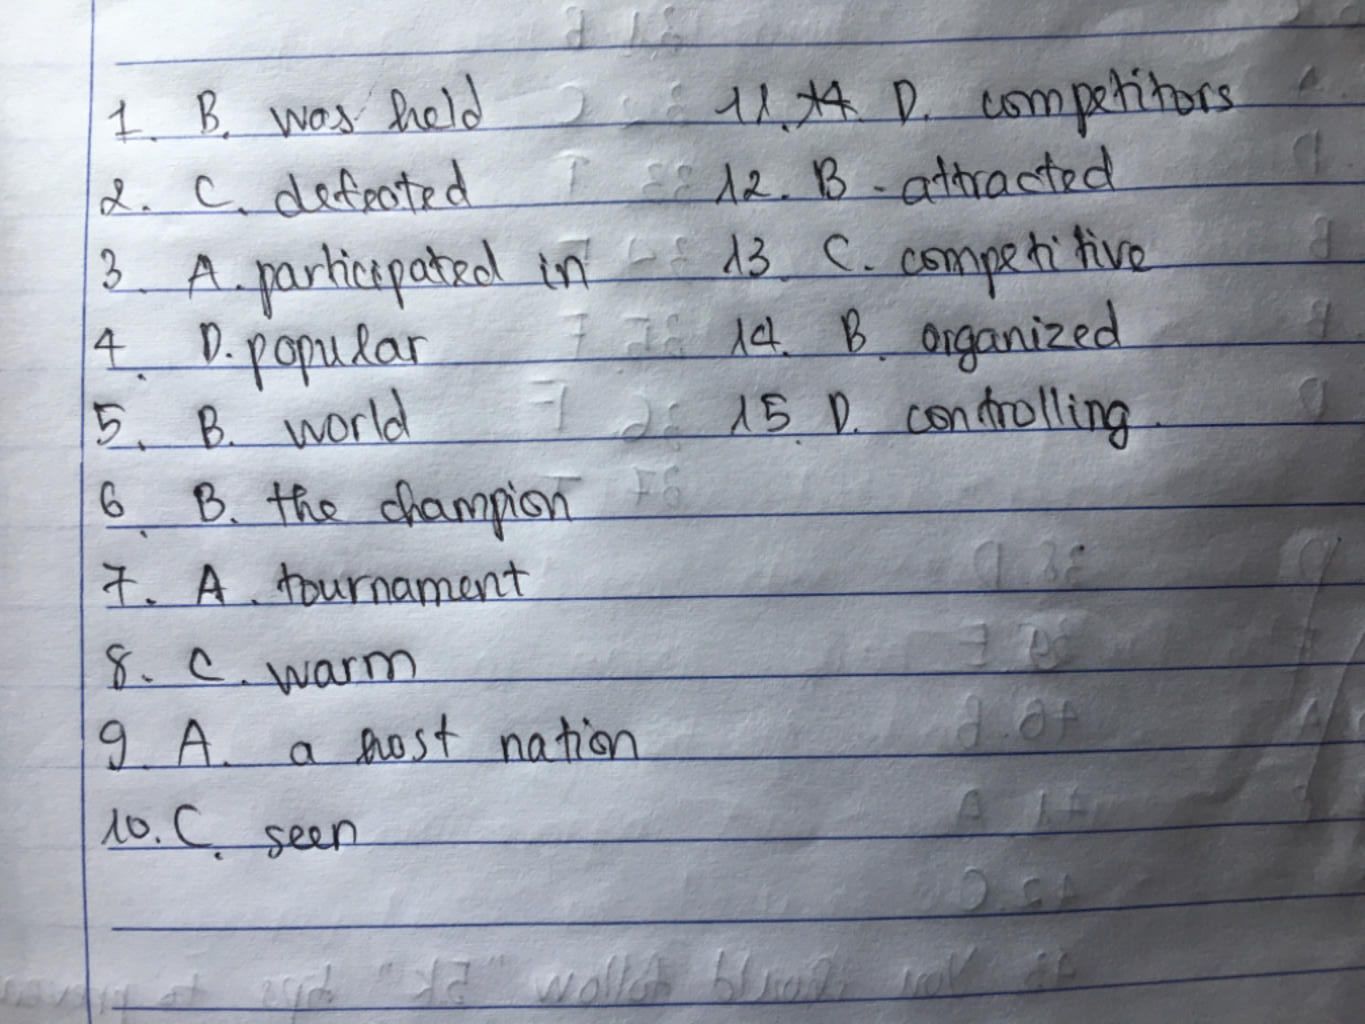 1. B. was held
2. C. defeated
3. A. participated in
4. D. popular
5. B. world
6. B. the champion
7. A. tournament
8. C. warm
9. A. a host nation
10. C. seen
11. D. competitors
12. B. attracted
13. C. competitive
14. B. organized
15. D. controlling.